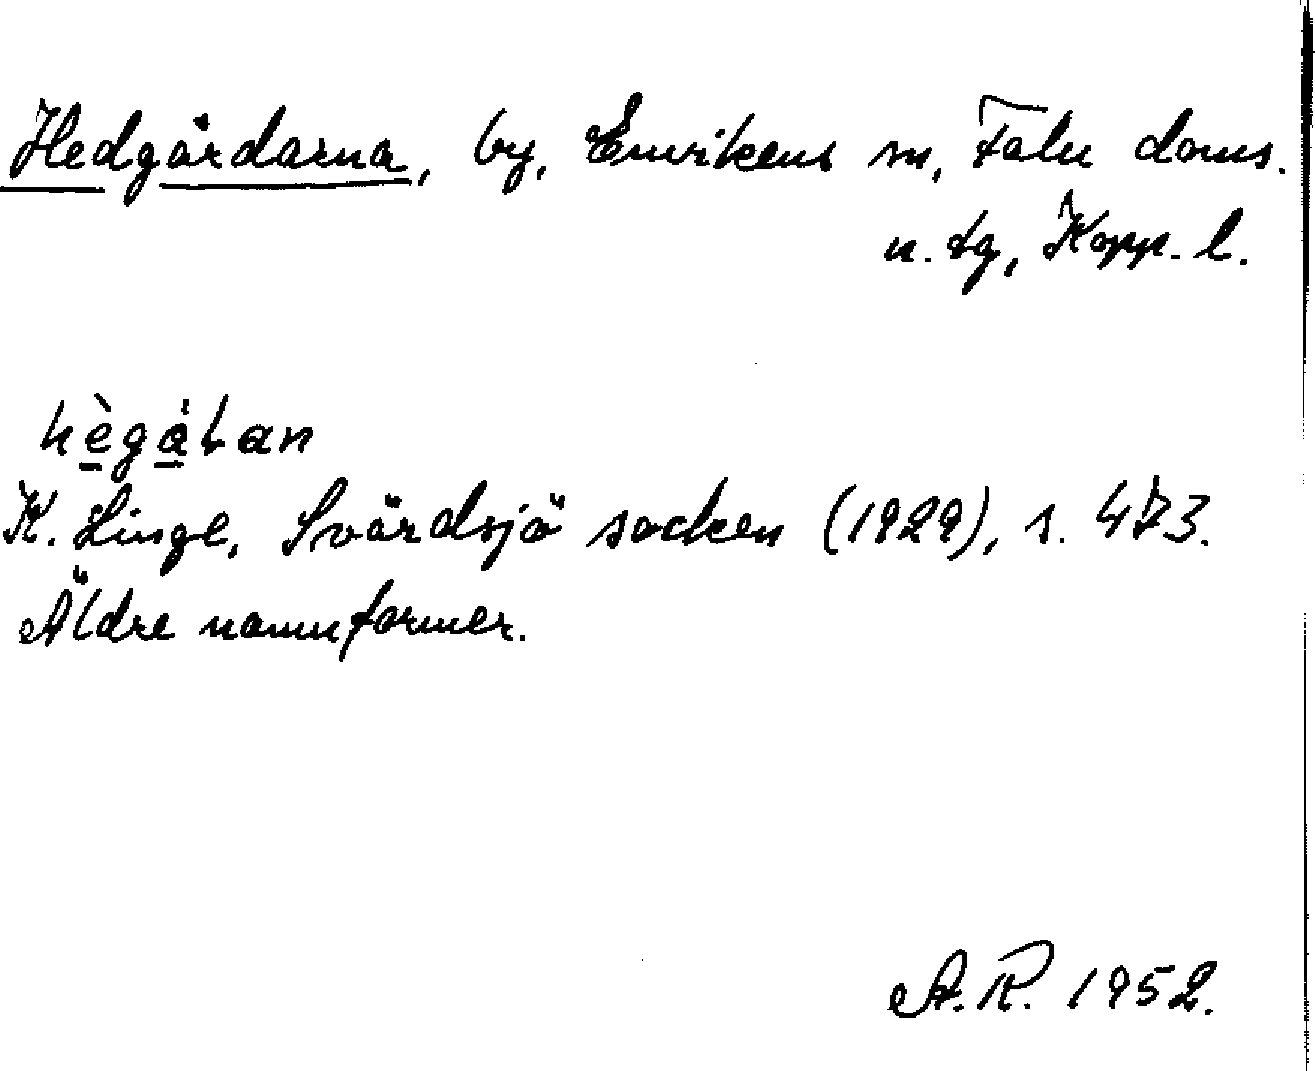 Hedgårdarna, by, Envikens sn, Falu doms.
n. tg, Kopp. l.
hègȧɫan
K. Linge, Svärdsjö socken (1929), s. 473.
Äldre namnformer.
A.R. 1952.